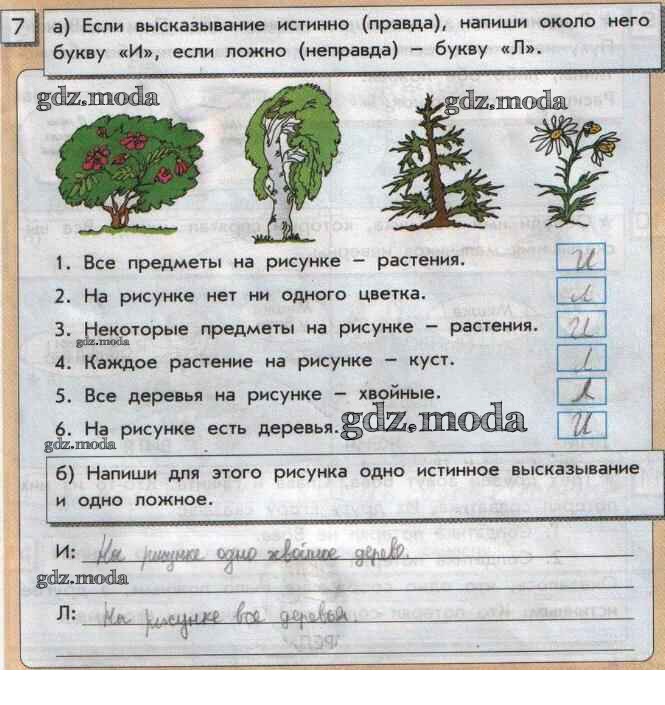 7 а) Если высказывание истинно (правда), напиши около него
букву «И», если ложно (неправда) – букву «Л».
gdz.moda
gdz.moda
1. Все предметы на рисунке – растения. И
2. На рисунке нет ни одного цветка. Л
3. Некоторые предметы на рисунке – растения. И
gdz.moda
4. Каждое растение на рисунке – куст. Л
5. Все деревья на рисунке – хвойные. Л
6. На рисунке есть деревья. И
gdz.moda
gdz.moda
б) Напиши для этого рисунка одно истинное высказывание
и одно ложное.
И: На рисунке одно хвойное дерево.
gdz.moda
Л: На рисунке все деревья